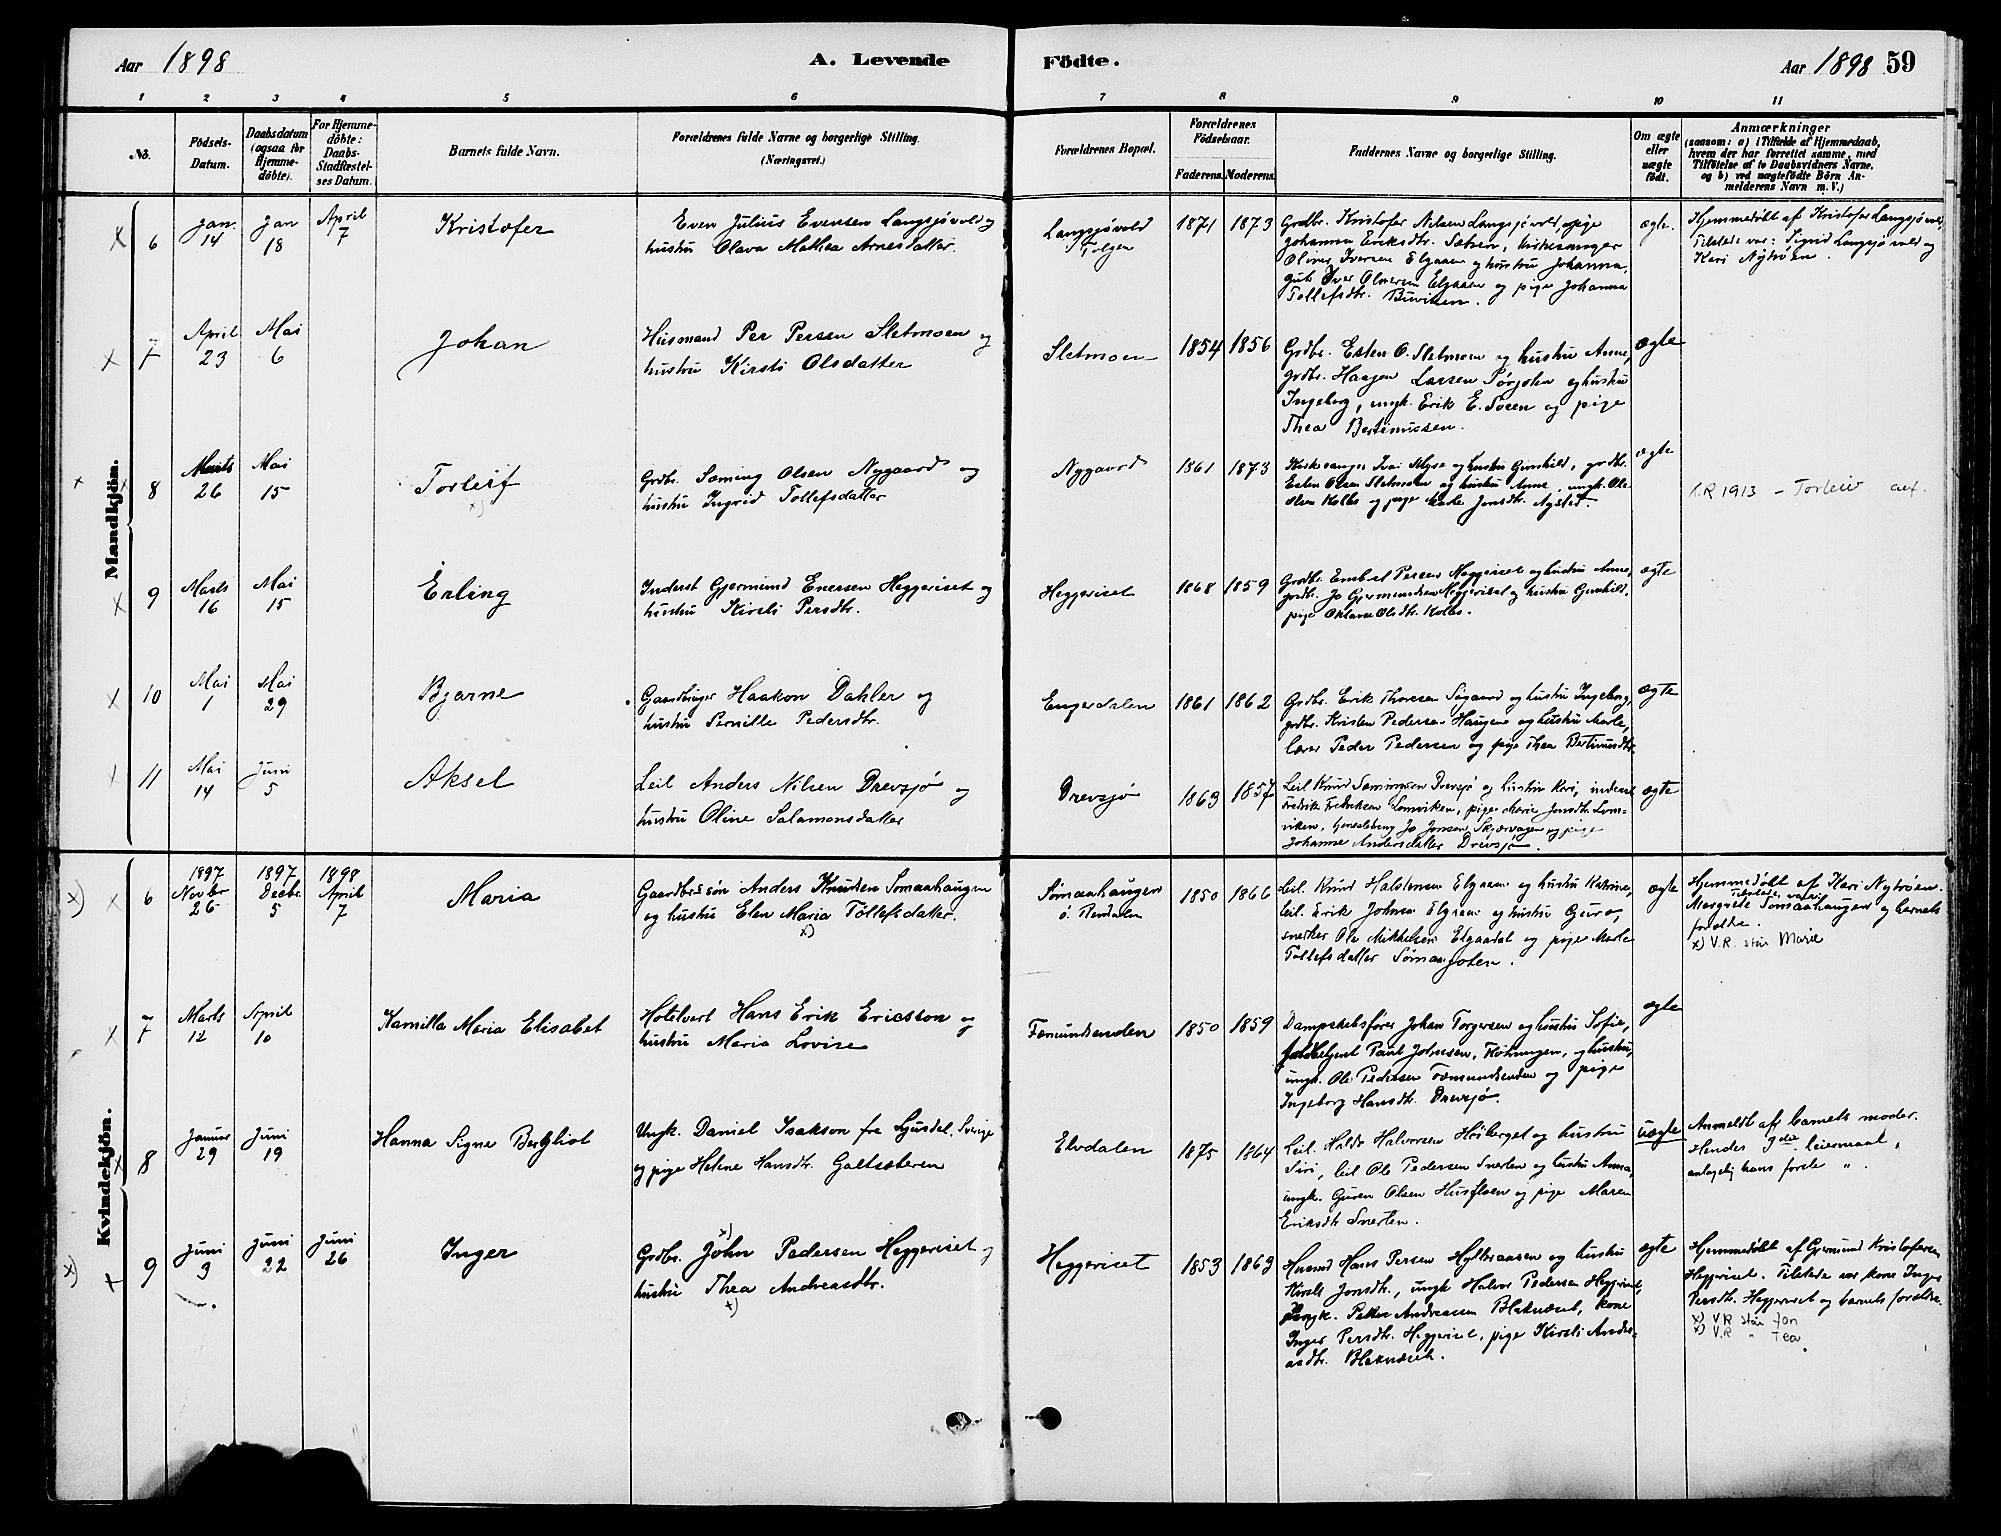 Aar 1898
A. Levende
Födte.
Aar 1898 59
1 2 3 4 5 6 7 8 9 10 11
No.
Födsels-
Datum.
Daabsdatum
(ogsaa for
Hjemme-
döbte).
For Hjemme-
döbte:
Daabs-
Stadfæstel-
ses Datum.
Barnets fulde Navn.
Forældrenes fulde Navne og borgerlige Stilling.
(Næringsvei.)
Forældrenes Bopæl.
Forældrenes
Födselsaar.
Faderens. Moderens.
Faddernes Navne og borgerlige Stilling.
Om ægte
eller
uægte
födt.
Anmærkninger
(saasom: a) i Tilfælde af Hjemmedaab,
hvem der har forrettet samme, med
Tilföielse af to Daabsvidners Navne,
og b) ved uægtefödte Börn An-
melderens Navn m. V.)
Mandkjön.
6
Jan.
14
Jan
18
April
7
Kristofer
Even Julius Evensen Langsjøvold og
hustru Olava Mathea Arnesdatter.
Langsjøvold
Tolgen
1871 1873
Grdbr. Kristofer Nilsen Langsjøvold, pige
Johanna Eriksdtr. Sætren, kirkesanger
Oliver Iversen Elgaaen og hustru Johanna,
gut Iver Olversen Elgaaen og pige Johanna
Tollefsdtr. Burviken.
ægte.
Hjemmedøbt af Kristofer Langsjøvold,
Tilstede var: Sigrid Langsjøvold og
Kari Nytrøen.
7
April
23
Mai
6
Johan
Husmand Per Persen Sletmoen og
hustru Kirsti Olsdatter
Sletmoen
1854 1856
Grdbr. Esten O. Sletmoen og hustru Anne,
grdbr. Haagen Larsen Sørjohn og hustru
Ingeborg, ungk. Erik E. Sveen og pige
Thea Bertinussen.
ægte
8
Marts
26
Mai
15
Torleif
x)
Grdbr. Sæming Olsen Nygaard og
hustru Ingrid Tollefsdatter
Nygaard
1861 1873
Kirkesanger Ivar Myse og hustru Gunhild, grdbr.
Esten Olsen Sletmoen og hustru Anne, ungk. Ole
Olsen Kolbo og pige Marte Jonsdtr. Nysted.
ægte
V.R 1913 – Torleiv
9
Marts
16
Mai
15
Erling
Inderst Gjermund Enersen Heggeriset og
hustru Kirsti Persdtr.
Heggeriset
1868 1859
Grdbr. Embret Persen Heggeriset og hustru Anne,
grdbr. Jo Gjermundsen Heggeriset og hustru Gunhild,
pige Oktava Olsdtr. Kolbo.
ægte
10
Mai
1
Mai
29
Bjarne
Gaardbruger Haakon Dahler og
hustru Pernille Pedersdtr.
Engerdalen
1861 1862
Grdbr. Erik Thoresen Søgaard og hustru Ingeborg,
grdbr. Kristen Pedersen Haugen og hustru Marte,
lærer Peder Pedersen og pige Thea Bertinusdtr.
ægte
11
Mai
14
Juni
5
Aksel
Leil. Anders Nilsen Drevsjø og
hustru Oline Salamonsdatter
Drevsjø
1863 1857
Leil Knud Sæmingsen Drevsjø og hustru Kari, inderst
Fredrik Fredriksen Lomviken, pige Marie Jonsdtr. Lom-
viken, Jo Jonsen Skjærvagen og pige
Johanne Andersdatter Drevsjø.
ægte
Kvindekjön.
x)
6
1897
Novbr
26
1897
Decbr.
5
1898
April
7
Maria
Gaardbr.søn Anders Knudsen Sømaahaugen
og hustru Elen Maria Tollefsdatter.
x)
Sømaahaugen
ø. Rendalen
1850 1866
Leil. Knud Halstensen Elgaaen og hustru Katrine,
leil. Erik Johnsen Elgaaen og hustru Guro,
snekker Ole Mikkelsen Elgaadal og pige Marte
Tollefsdatter Sømaagoten.
ægte
Hjemmedøbt af Kari Nytrøen.
Tilstede var:
Margrete Sømaahaugen og barnets
forældre.
x) V.R. står Marie
7
Marts
12
April
10
Kamilla Maria Elisabet
Hotelvert Hans Erik Ericsson og
hustru Maria Lovise
Fæmundsenden
1850 1859
Dampskibsfører Johan Torgersen og hustru Sofie,
Paul Johnsen, Flötningen, og hustru,
ungk. Ole Pedersen Fæmundsenden og pige
Ingeborg Hansdtr. Drevsjø.
ægte
8
Januar
29
Juni
19
Hanna Signe Bergliot
Ungk. Daniel Isakson fra Ljusdal, Sverige
og pige Helene Hansdtr. Galtsæteren
Elvdalen
1875 1864
Leil. Haldo Halvorsen Høiberget og hustru
Siri, leil Ole Pedersen Snerten og hustru Anna
ungk. Guren Olsen Husfloen og pige Maren
Eriksdtr Snerten.
uægte
Anmeldt af barnets moder.
Hendes 3die leiermaal,
antagelig hans første ".
x)
9
Juni
3
Juni
22
Juni
26
Inger
x)
Grdbr. John Pedersen Heggeriset og
hustru Thea Andreasdtr.
x)
Heggeriset
1853 1863
Husmd Hans Persen Hylleraasen og hustru
Kirsti Jonsdtr., ungk Halvor Pedersen Heggeriset,
ungk. Petter Andreassen Blaknæset, kone
Inger Persdtr. Heggeriset, pige Kirsti Andre-
asdtr. Blaknæset.
ægte
Hjemmedøbt af Gjermund Kristofersen
Heggeriset. Tilstede var kone Inger
Persdtr. Heggeriset og barnets forældre.
x) V.R står Jon
x) V.R " Tea